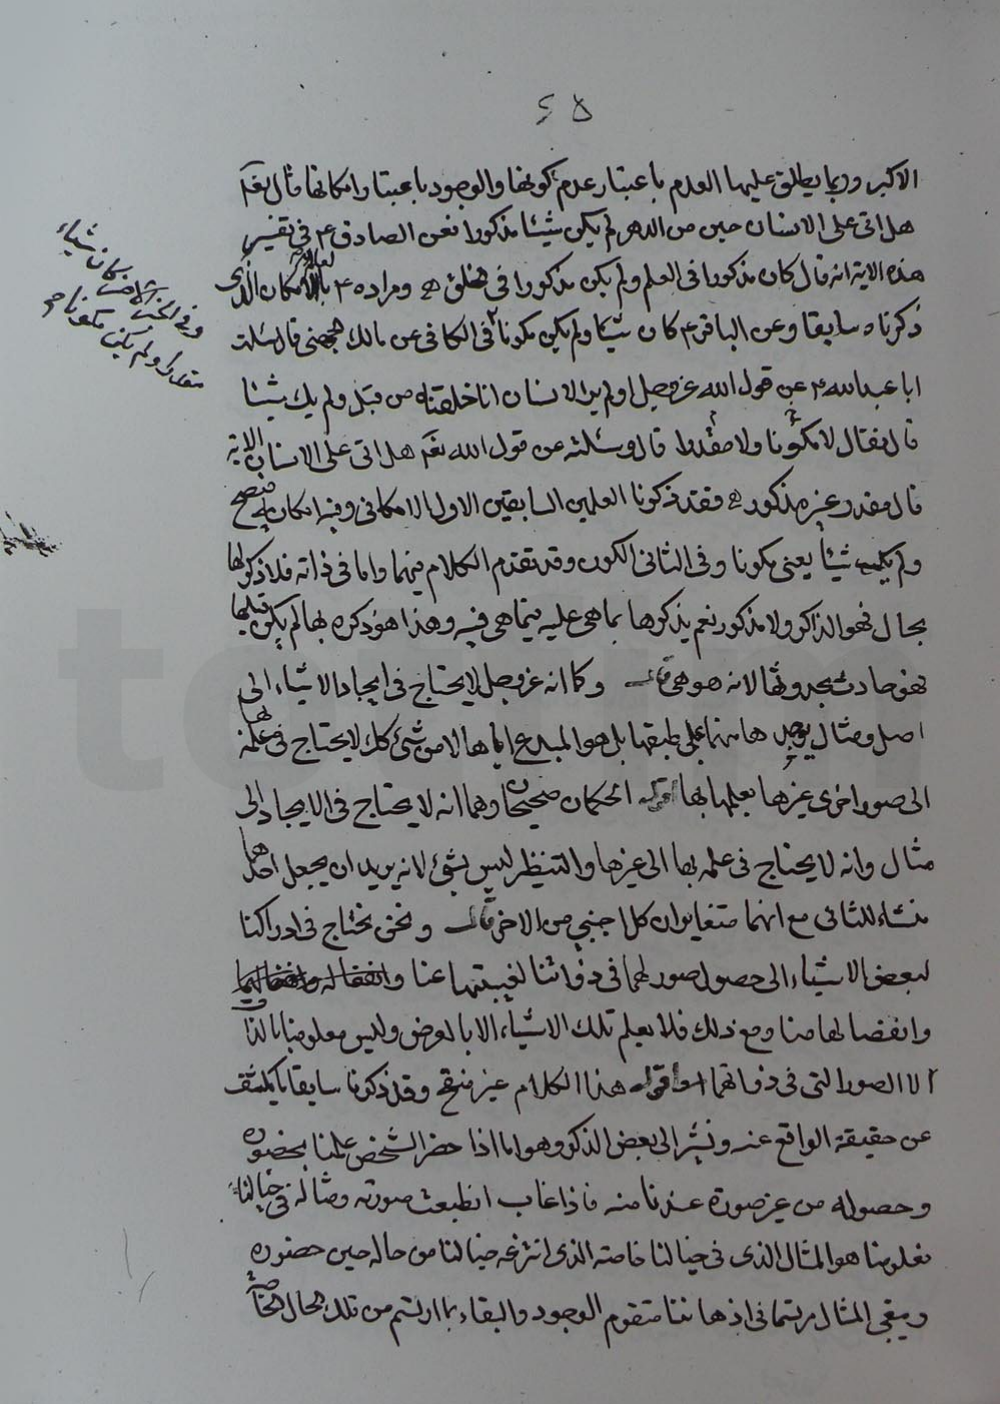 ٤٥
الاكبر وربما يطلق عليها العدم باعتبار عدم كونها والوجود باعتبار امكانها قال تعالى
هل اتى على الانسان حين من الدهر لم يكن شيئا مذكورا فعن الصادق ع في تفسير
هذه الاية انه قال كان مذكورا في العلم ولم يكن مذكورا في الخلق ه ومراده ع بالعلم الامكان الذى
ذكرناه سابقا وعن الباقر ع كان شيئا ولم يكن مكونا وفي الكافي عن مالك الجهني قال سئلت
ابا عبدالله ع عن قول الله عز وجل اولم ير الانسان انا خلقناه من قبل ولم يك شيئا
قال فقال لا مكونا ولا مقدرا قال وسئلته عن قول الله تعم هل اتى على الانسان الاية
قال مقدر غير مذكور ه فقد ذكرنا العلمين السابقين الاول الامكاني وفيه امكان فيصح
ولم يكن شيئا يعني مكونا وفي الثاني الكون وقد تقدم الكلام فيهما واما في ذاته فلا ذكر لها
بحال فهو الذاكر ولا مذكور نعم يذكرها بما هي عليه فيما هي فيه وهذا هو ذكره بها لم يكن قبلها
فهو حادث بحدوثها لانه هو هي قال وكما انه عز وجل لا يحتاج في ايجاد الاشياء الى
اصل ومثال يوجدها منهما على طبقها بل هو المبدع اياها لا من شئ كك لا يحتاج في علمه بها
الى صور اخرى غيرها يعلمها بها اقول الحكمان صحيحان وهما انه لا يحتاج في الايجاد الى
مثال وانه لا يحتاج في علمه بها الى غيرها والتنظير ليس بشئ لانه يريد ان يجعل احدهما
منشاء للثانى مع انهما متغايران كل اجنبي من الاخر قال ونحن نحتاج في ادراكنا
لبعض الاشياء الى حصول صور لها في ذواتنا لغيبتها عنا
وانفصالها منا ومع ذلك فلا يعلم تلك الاشياء الا بالعرض وليس معلومنا بالذات
الا الصور التى في ذواتها اقول هذا الكلام غير منقح وقد ذكرنا سابقا ما يكشف
عن حقيقة الواقع عنه ونشير الى بعض الذكر وهو اما اذا حضر الشخص علمنا بحضوره
وحصوله من غير صورة عندنا منه فاذا غاب انطبعت صورته ومثاله في خيالنا
فعلومنا هو المثال الذى في خيالنا خاصته الذى انتزعه خيالنا من حاله حين حضوره
ويبقى المثال مرتسما في اذهاننا متقوم الوجود والبقاء بما ارتسم من تلك الحال الخاصة
وفي الخبر الاخر كان شيئا
مقدرا ولم يكن مكونا صح